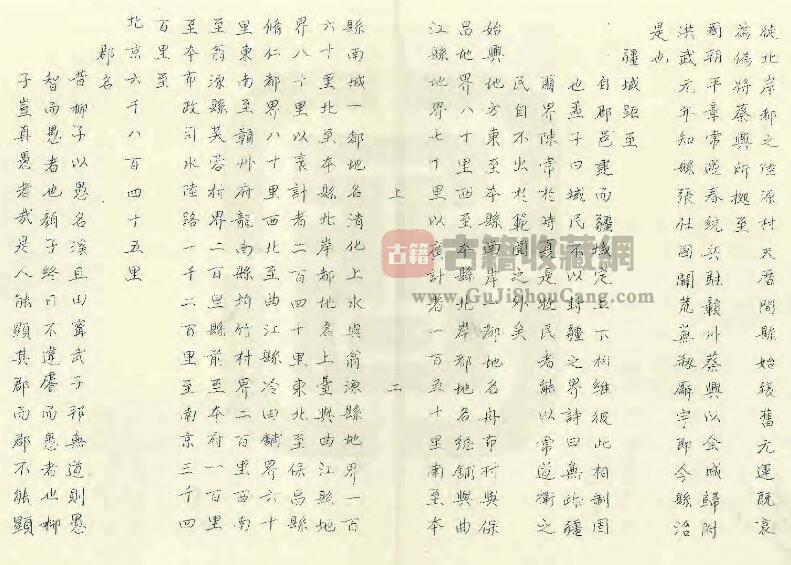 從北岸都之陸源村天曆間縣始復舊元運既衰
為偽將蔡興所據至
國朝平章常遇春統兵駐贛州蔡興以全城歸附
洪武元年知縣張杜國開荒蕪剏廨宇即今縣治
是也
疆域距至
自郡邑建而疆域定上下相維彼此相制固
也孟子曰域民不以封疆之界詩曰無此疆
爾界陳常於時夏是收民者能以常道衛之
民自不出於範圍之外矣
始興地方東至本縣南岸都地名舟市村與保
昌地界八十里西至本縣北岸都地名總鋪與曲
江縣地界七十里以廣計者一百五十里南至本
上 二
縣南城一都地名清化上水與翁源縣地界一百
六十里北至本縣北岸都地名上臺與曲江縣地
界八十里以袤計者二百四十里東北至保昌縣
脩仁都界八十里西北至曲江縣冷田鋪界六十
里東南至贛州府龍南縣均竹村界二百里西南
至翁源縣芙蓉村界二百里縣前至本府一百里
至本布政司水陸路一千二百里至南京三千四
百里至
北京六千八百四十五里
郡名
昔柳子以愚名溪且曰甯武子邦無道則愚
智而愚者也顏子終日不違愚而愚者也柳
子豈真愚者哉是人能顯其郡而郡不能顯
古籍
古籍收藏網
www.GuJiShouCang.com